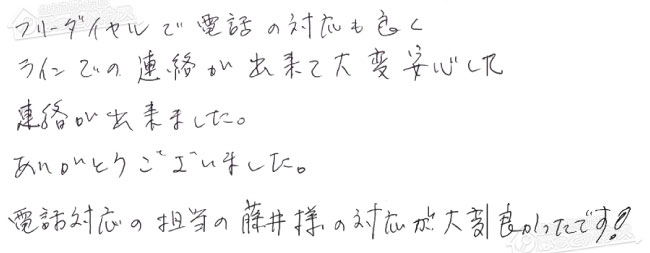 フリーダイヤルで電話の対応も良く
ラインでの連絡が出来て大変安心した
連絡が出来ました。
ありがとうございました。
電話対応の担当の藤井様の対応が大変良かったです!